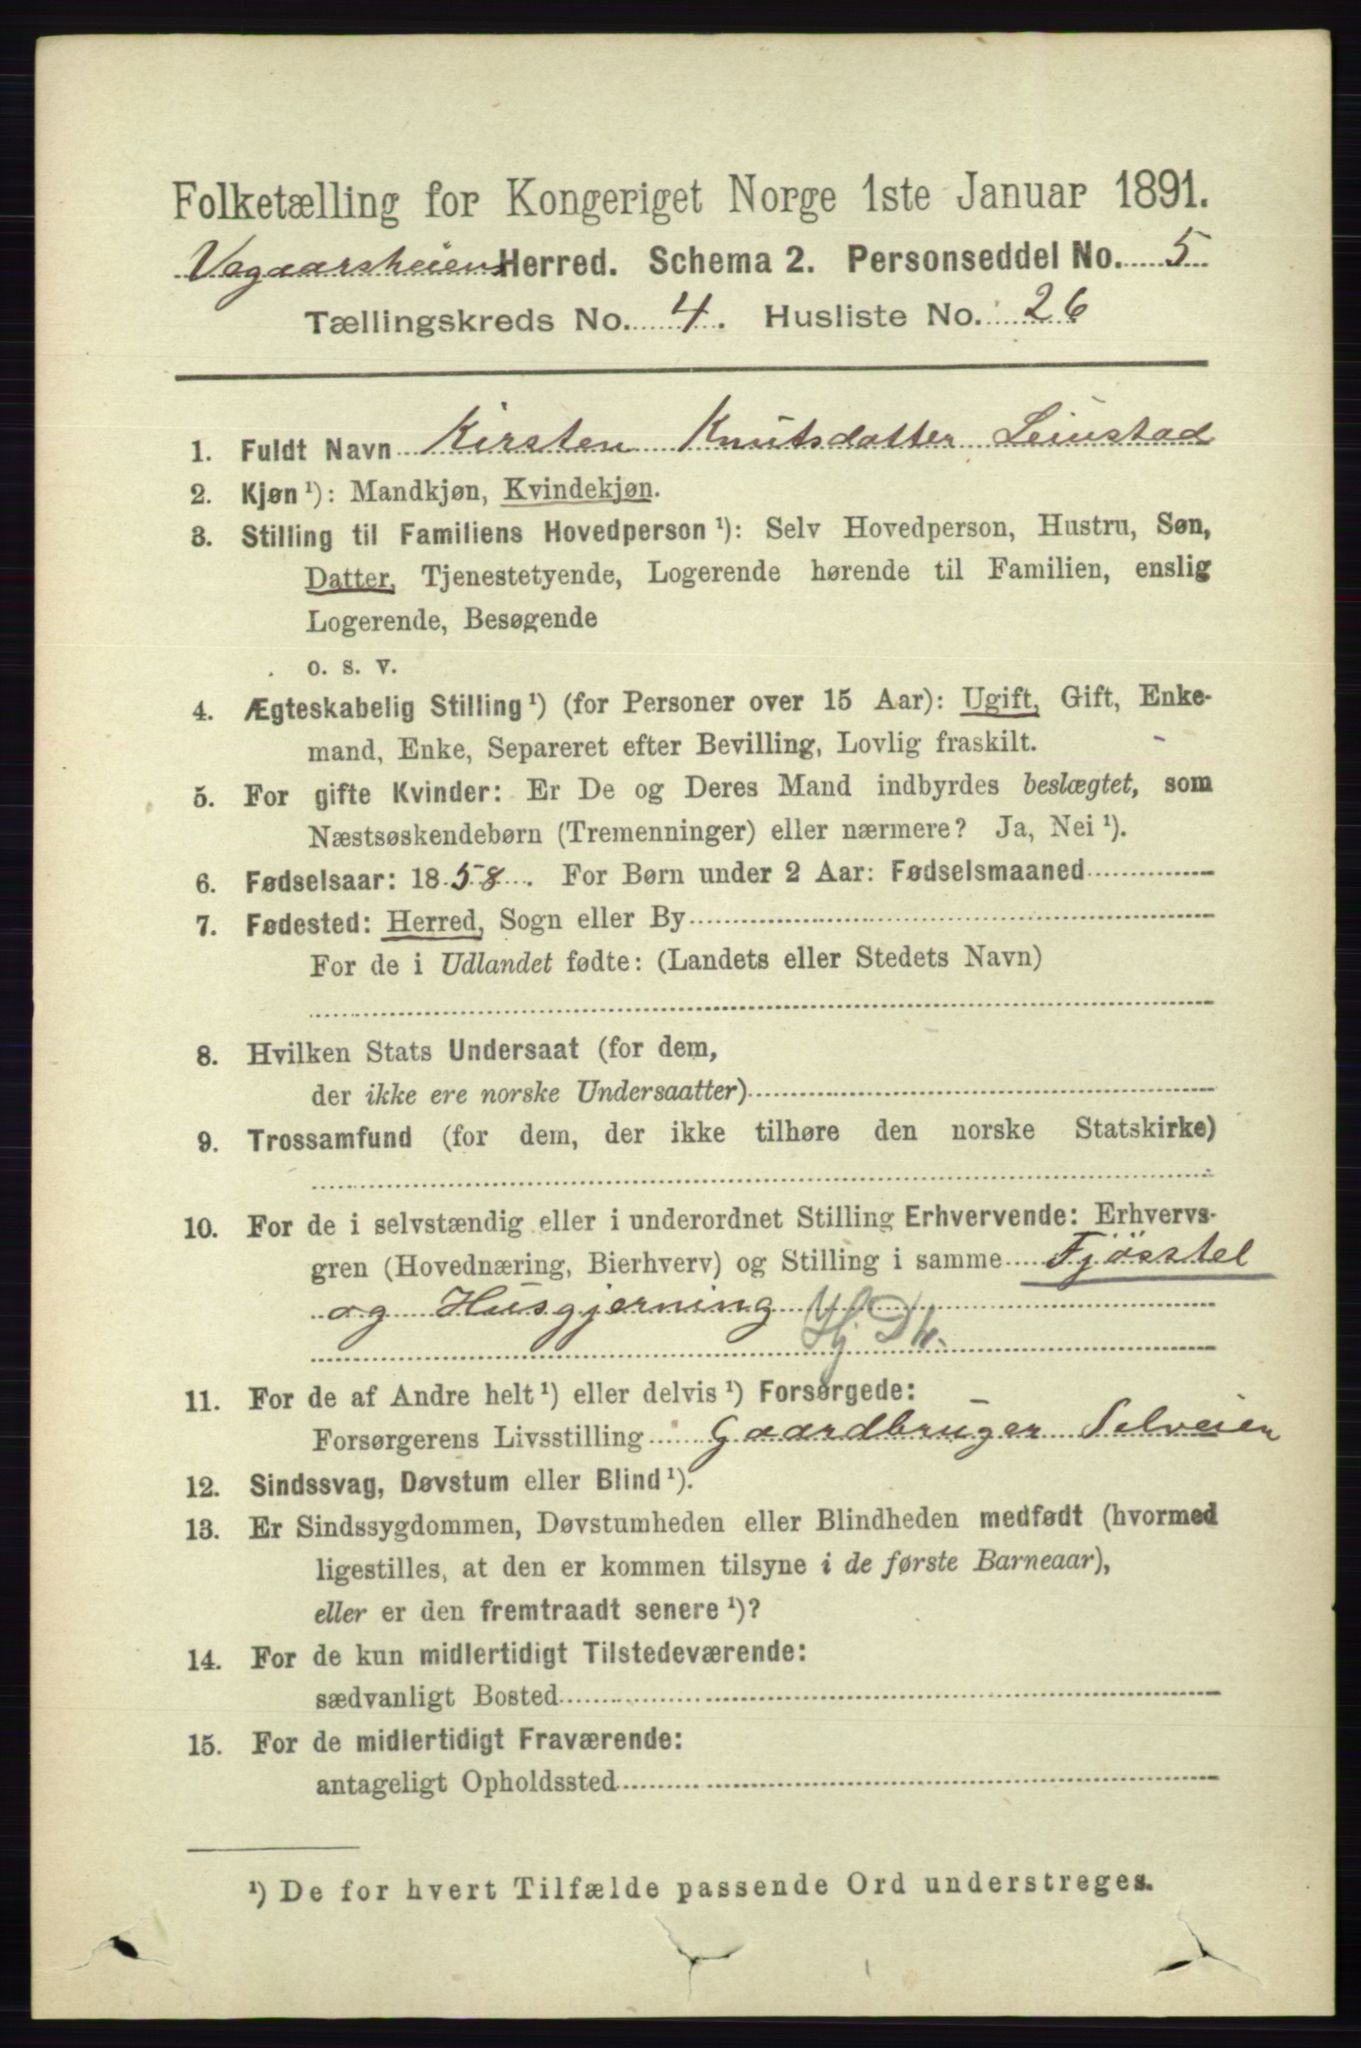 Folketælling for Kongeriget Norge 1ste Januar 1891.
Vegaarsheiens Herred. Schema 2. Personseddel No. 5
Tællingskreds No. 4. Husliste No. 26
1. Fuldt Navn Kirsten Knutsdatter Leiustad
2. Kjøn ¹): Mandkjøn, Kvindekjøn.
3. Stilling til Familiens Hovedperson ¹): Selv Hovedperson, Hustru, Søn,
Datter, Tjenestetyende, Logerende hørende til Familien, enslig
Logerende, Besøgende
o. s. v.
4. Ægteskabelig Stilling ¹) (for Personer over 15 Aar): Ugift, Gift, Enke-
mand, Enke, Separeret efter Bevilling, Lovlig fraskilt.
5. For gifte Kvinder: Er De og Deres Mand indbyrdes beslægtet, som
Næstsøskendebørn (Tremenninger) eller nærmere? Ja, Nei ¹).
6. Fødselsaar: 1858. For Børn under 2 Aar: Fødselsmaaned
7. Fødested: Herred, Sogn eller By
For de i Udlandet fødte: (Landets eller Stedets Navn)
8. Hvilken Stats Undersaat (for dem,
der ikke ere norske Undersaatter)
9. Trossamfund (for dem, der ikke tilhøre den norske Statskirke)
10. For de i selvstændig eller i underordnet Stilling Erhvervende: Erhvervs-
gren (Hovednæring, Bierhverv) og Stilling i samme Fjøsstel
og Husgjerning
11. For de af Andre helt ¹) eller delvis ¹) Forsørgede:
Forsørgerens Livsstilling Gaardbruger Selveien
12. Sindssvag, Døvstum eller Blind ¹).
13. Er Sindssygdommen, Døvstumheden eller Blindheden medfødt (hvormed
ligestilles, at den er kommen tilsyne i de første Barneaar),
eller er den fremtraadt senere ¹)?
14. For de kun midlertidigt Tilstedeværende:
sædvanligt Bosted
15. For de midlertidigt Fraværende:
antageligt Opholdssted
¹) De for hvert Tilfælde passende Ord understreges.